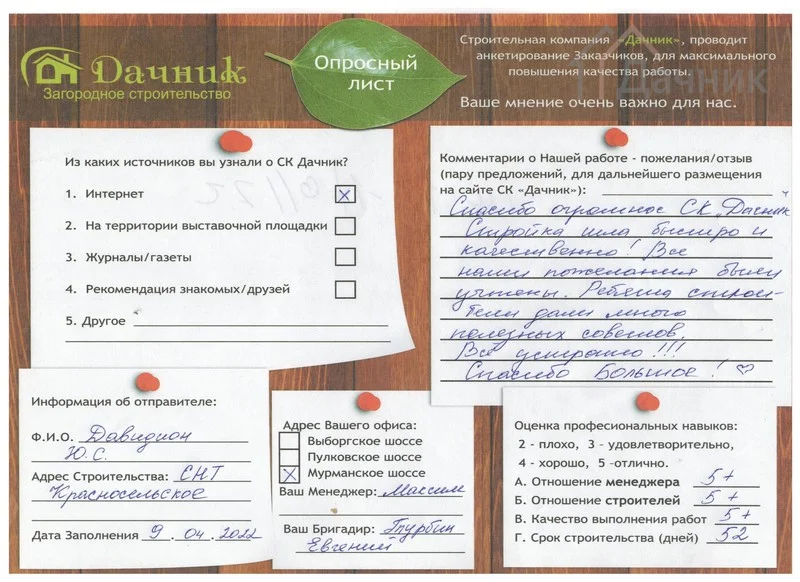 Дачник
Загородное строительство
Опросный
лист
Строительная компания «Дачник», проводит
анкетирование Заказчиков, для максимального
повышения качества работы.
Ваше мнение очень важно для нас.
Дачник
Из каких источников вы узнали о СК Дачник?
1. Интернет x
2. На территории выставочной площадки
3. Журналы/газеты
4. Рекомендация знакомых/друзей
5. Другое
Комментарии о Нашей работе - пожелания/отзыв
(пару предложений, для дальнейшего размещения
на сайте СК «Дачник»):
Спасибо огромное СК „Дачник"
Стройка шла быстро и
качественно! Все
наши пожелания были
учтены. Ребята строи-
тели дали много
полезных советов.
Всё устроило!!!
Спасибо Большое! ♡
Информация об отправителе:
Ф.И.О.
Ю.С.
Адрес Строительства: СНТ
Красносельское
Дата Заполнения 9.04.2022
Адрес Вашего офиса:
Выборгское шоссе
Пулковское шоссе
x Мурманское шоссе
Ваш Менеджер: Максим
Ваш Бригадир: Турбин
Евгений
Оценка профессиональных навыков:
2 - плохо, 3 - удовлетворительно,
4 - хорошо, 5 -отлично.
А. Отношение менеджера 5+
Б. Отношение строителей 5+
В. Качество выполнения работ 5+
Г. Срок строительства (дней) 52